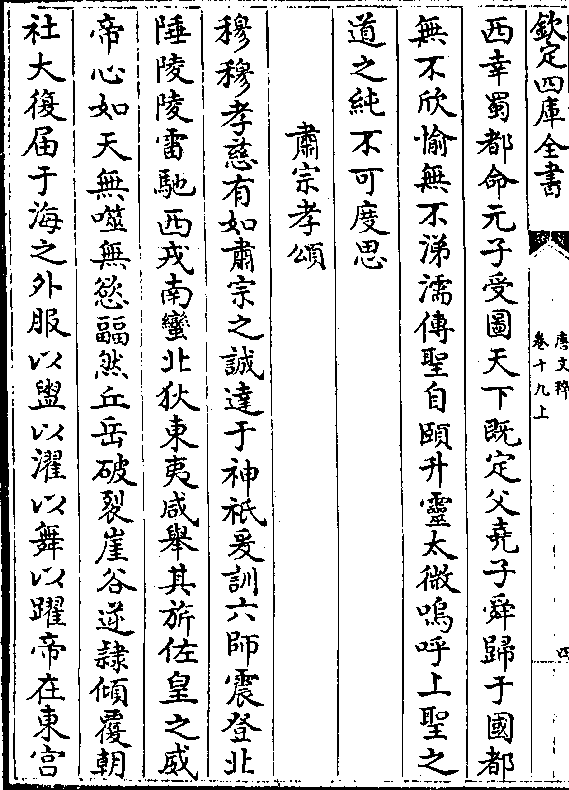 欽定四庫全書
唐文粹
卷十九上
四
西幸蜀都命元子受圖天下既定父堯子舜歸于國都
無不欣愉無不涕濡傳聖自頤升靈太微嗚呼上聖之
道之純不可度思
肅宗孝頌
穆穆孝慈有如肅宗之誠達于神祇爰訓六師震登北
陲陵陵雷馳西戎南蠻北狄東夷咸舉其旂佐皇之威
帝心如天無噬無慾畐然丘岳破裂崖谷逆隷傾覆朝
社大復届于海之外服以盥以濯以舞以躍帝在東宫